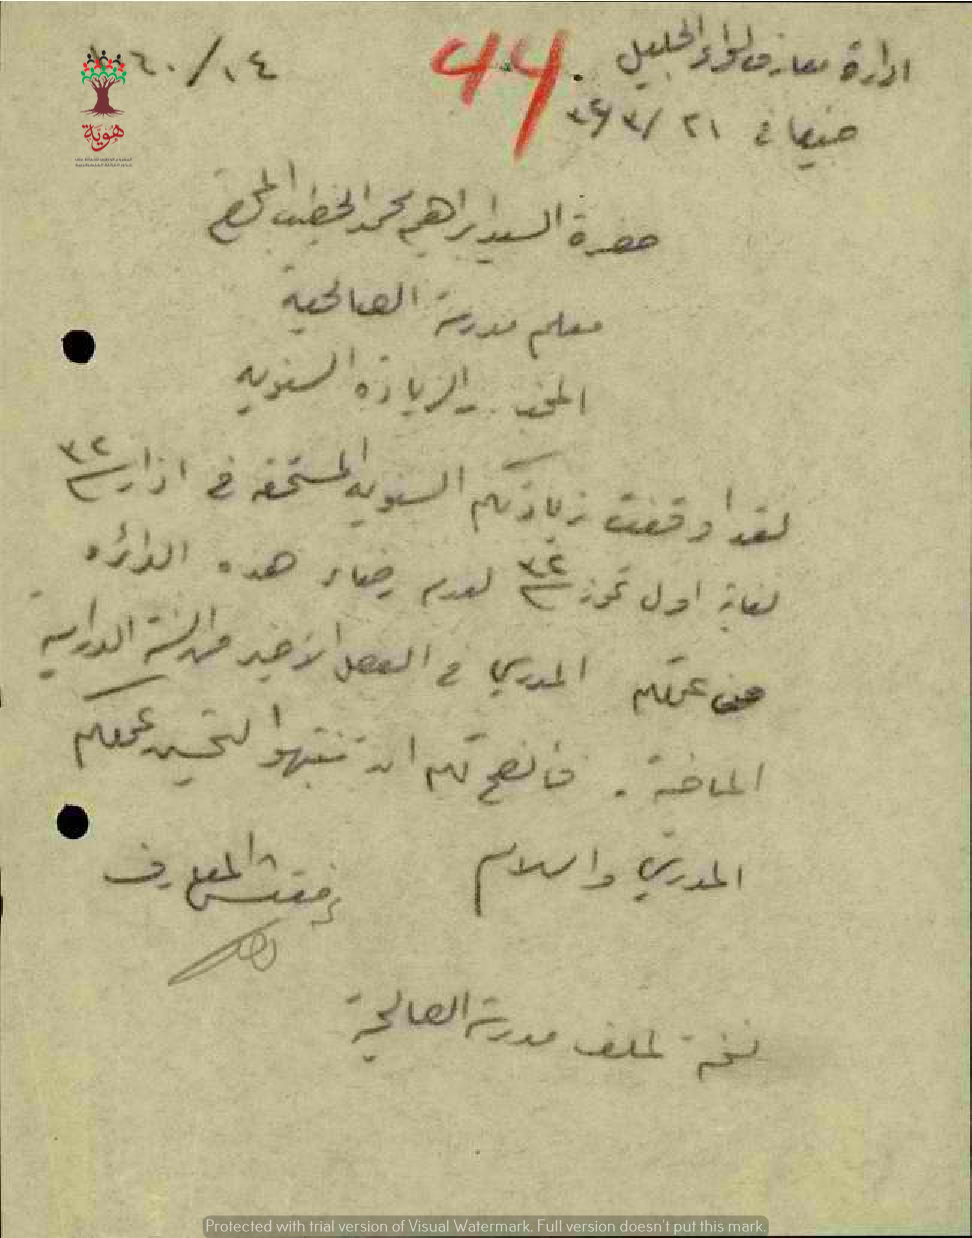 ادارة معارف لواء الجليل
١٤/٦٠
44
صفد في ٢١/٣/٣٢
حضرة السيد ابراهيم محمد الخطيب المحترم
معلم مدرسة الصالحية
الزيادة السنويه
لقد اوقفت زيادتكم السنويه المستحقه في اذار سنة ٣٢
لغاية اول تموز سنة ٣٢ لعدم رضاء هذه الدائره
عن عملكم المدرسي في الفصل الاخير من السنة الدراسية
الماضية . فانصح لكم ان تنتبهوا لتحسين عملكم
المدرسي والسلام
مفتش المعارف
نسخة لملف مدرسة الصالحية
هوية
Protected with trial version of Visual Watermark. Full version doesn't put this mark.